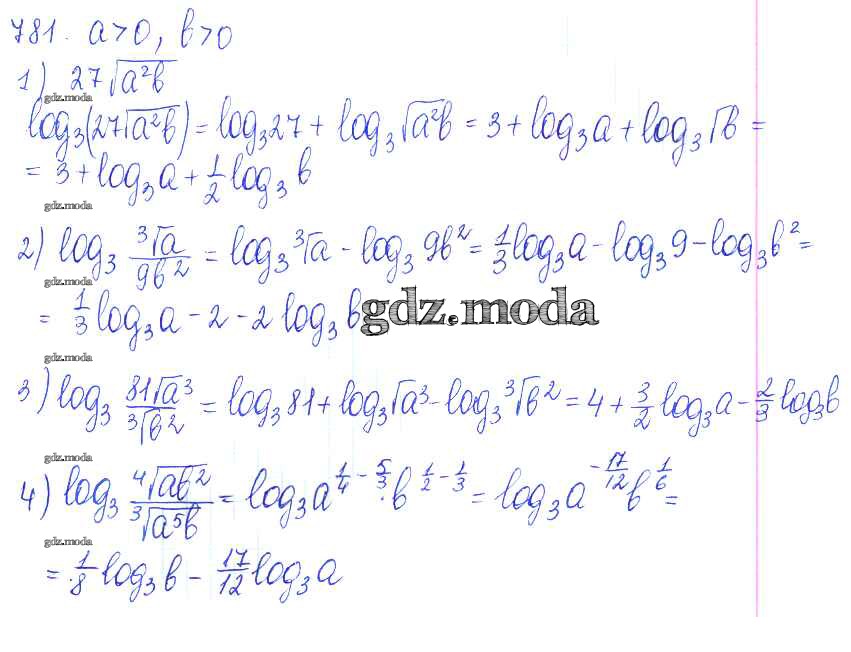 781. a>0, b>0
1) 27√(a²b)
gdz.moda
log₃(27√(a²b)) = log₃27 + log₃√(a²b) = 3 + log₃a + log₃√b =
= 3 + log₃a + 1/2 log₃b
gdz.moda
2) log₃ (³√a)/(9b²) = log₃ ³√a - log₃ 9b² = 1/3 log₃a - log₃9 - log₃b² =
gdz.moda
= 1/3 log₃a - 2 - 2 log₃b
gdz.moda
gdz.moda
3) log₃ (81√a³)/(³√b²) = log₃81 + log₃√a³ - log₃ ³√b² = 4 + 3/2 log₃a - 2/3 log₃b
gdz.moda
4) log₃ (⁴√(ab²))/(³√(a⁵b)) = log₃a^(1/4 - 5/3) · b^(1/2 - 1/3) = log₃a^(-17/12) b^(1/6) =
gdz.moda
= 1/8 log₃b - 17/12 log₃a